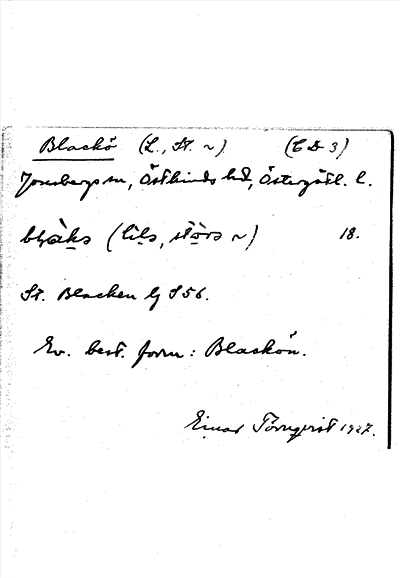 Blackö (L., St. ~) (C D 3)
Jonsbergs sn, Östkinds hd, Östergötl. l.
(lils, ~) 18.
St. Blacken Gj S 56.
Ev. best. form: Blackön.
Einar Törnqvist 1927.